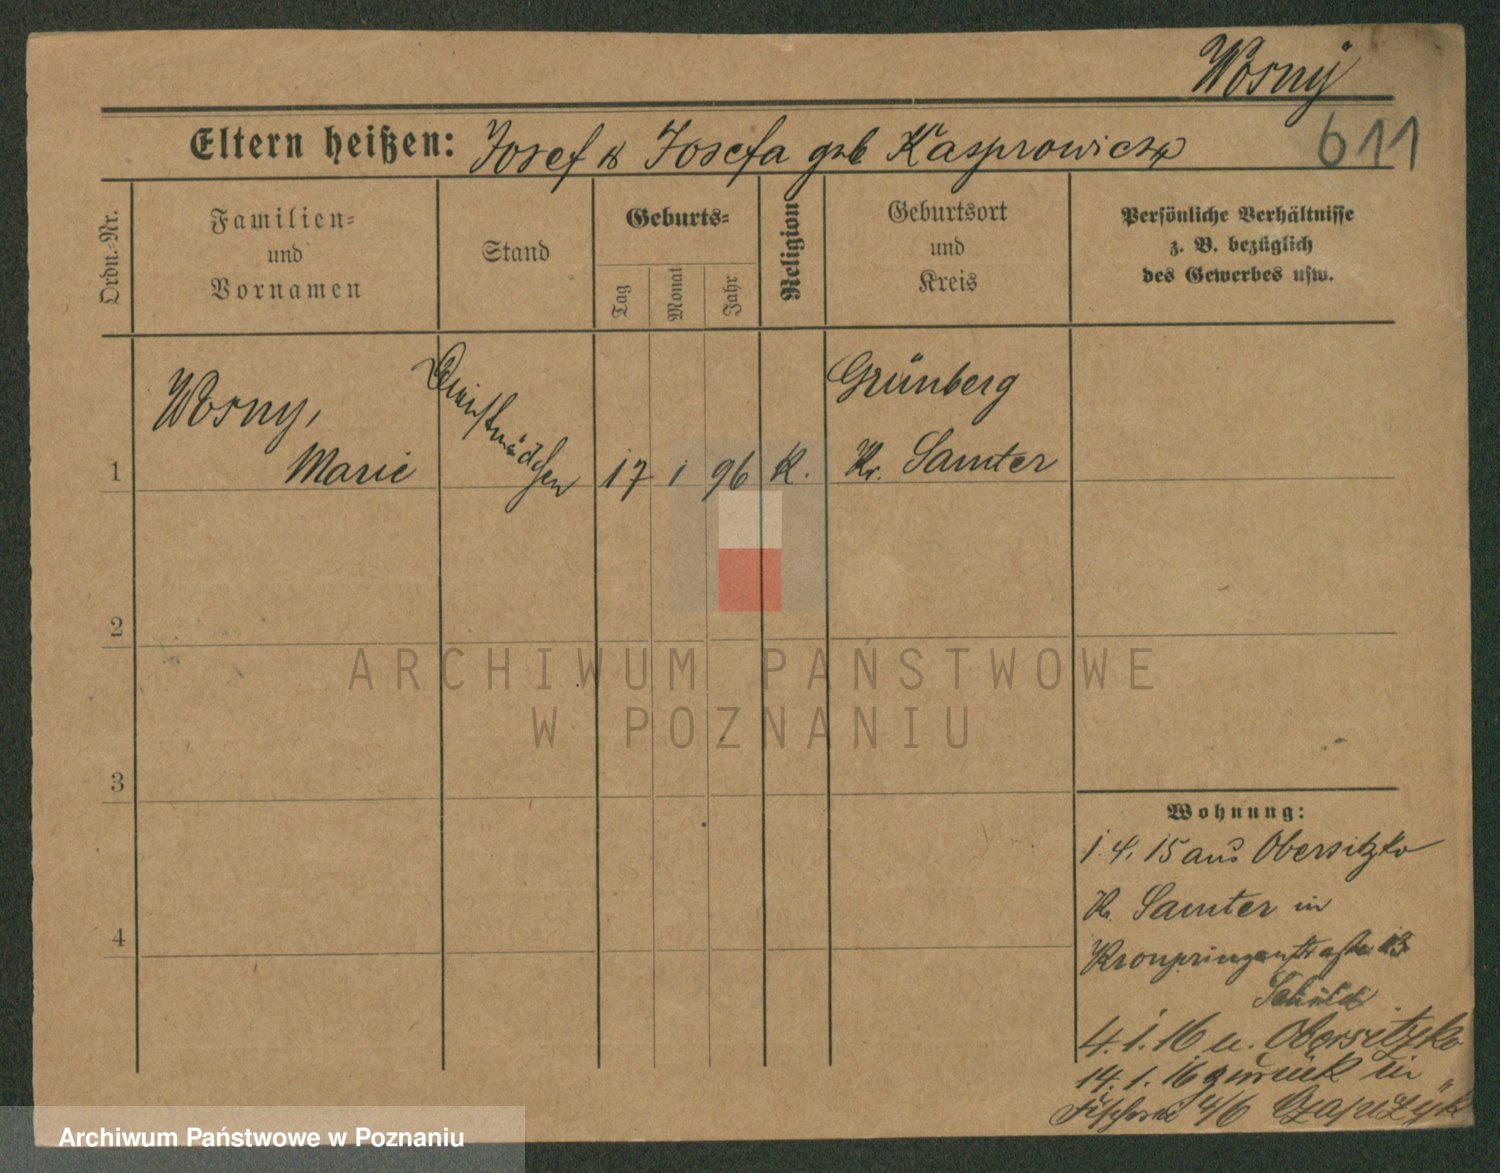 Wosny
Eltern heißen: Josef & Josefa geb Kasprowicz
611
Ordn.-Nr.
Familien-
und
Vornamen
Stand
Geburts-
Tag
Monat
Jahr
Religion
Geburtsort
und
Kreis
Persönliche Verhältnisse
z. B. bezüglich
des Gewerbes usw.
Wosny,
Marie
Dienstmädchen
1
17 1 96 K.
Grünberg
Kr. Samter
2
3
4
ARCHIWUM PAŃSTWOWE
W POZNANIU
Wohnung:
1. 4. 15 aus Obersitzko
Kr. Samter in
Kronprinzenstraße 13
4. 1. 16 n. Obersitzko
14. 1. 16 zurück in
4/6
Archiwum Państwowe w Poznaniu